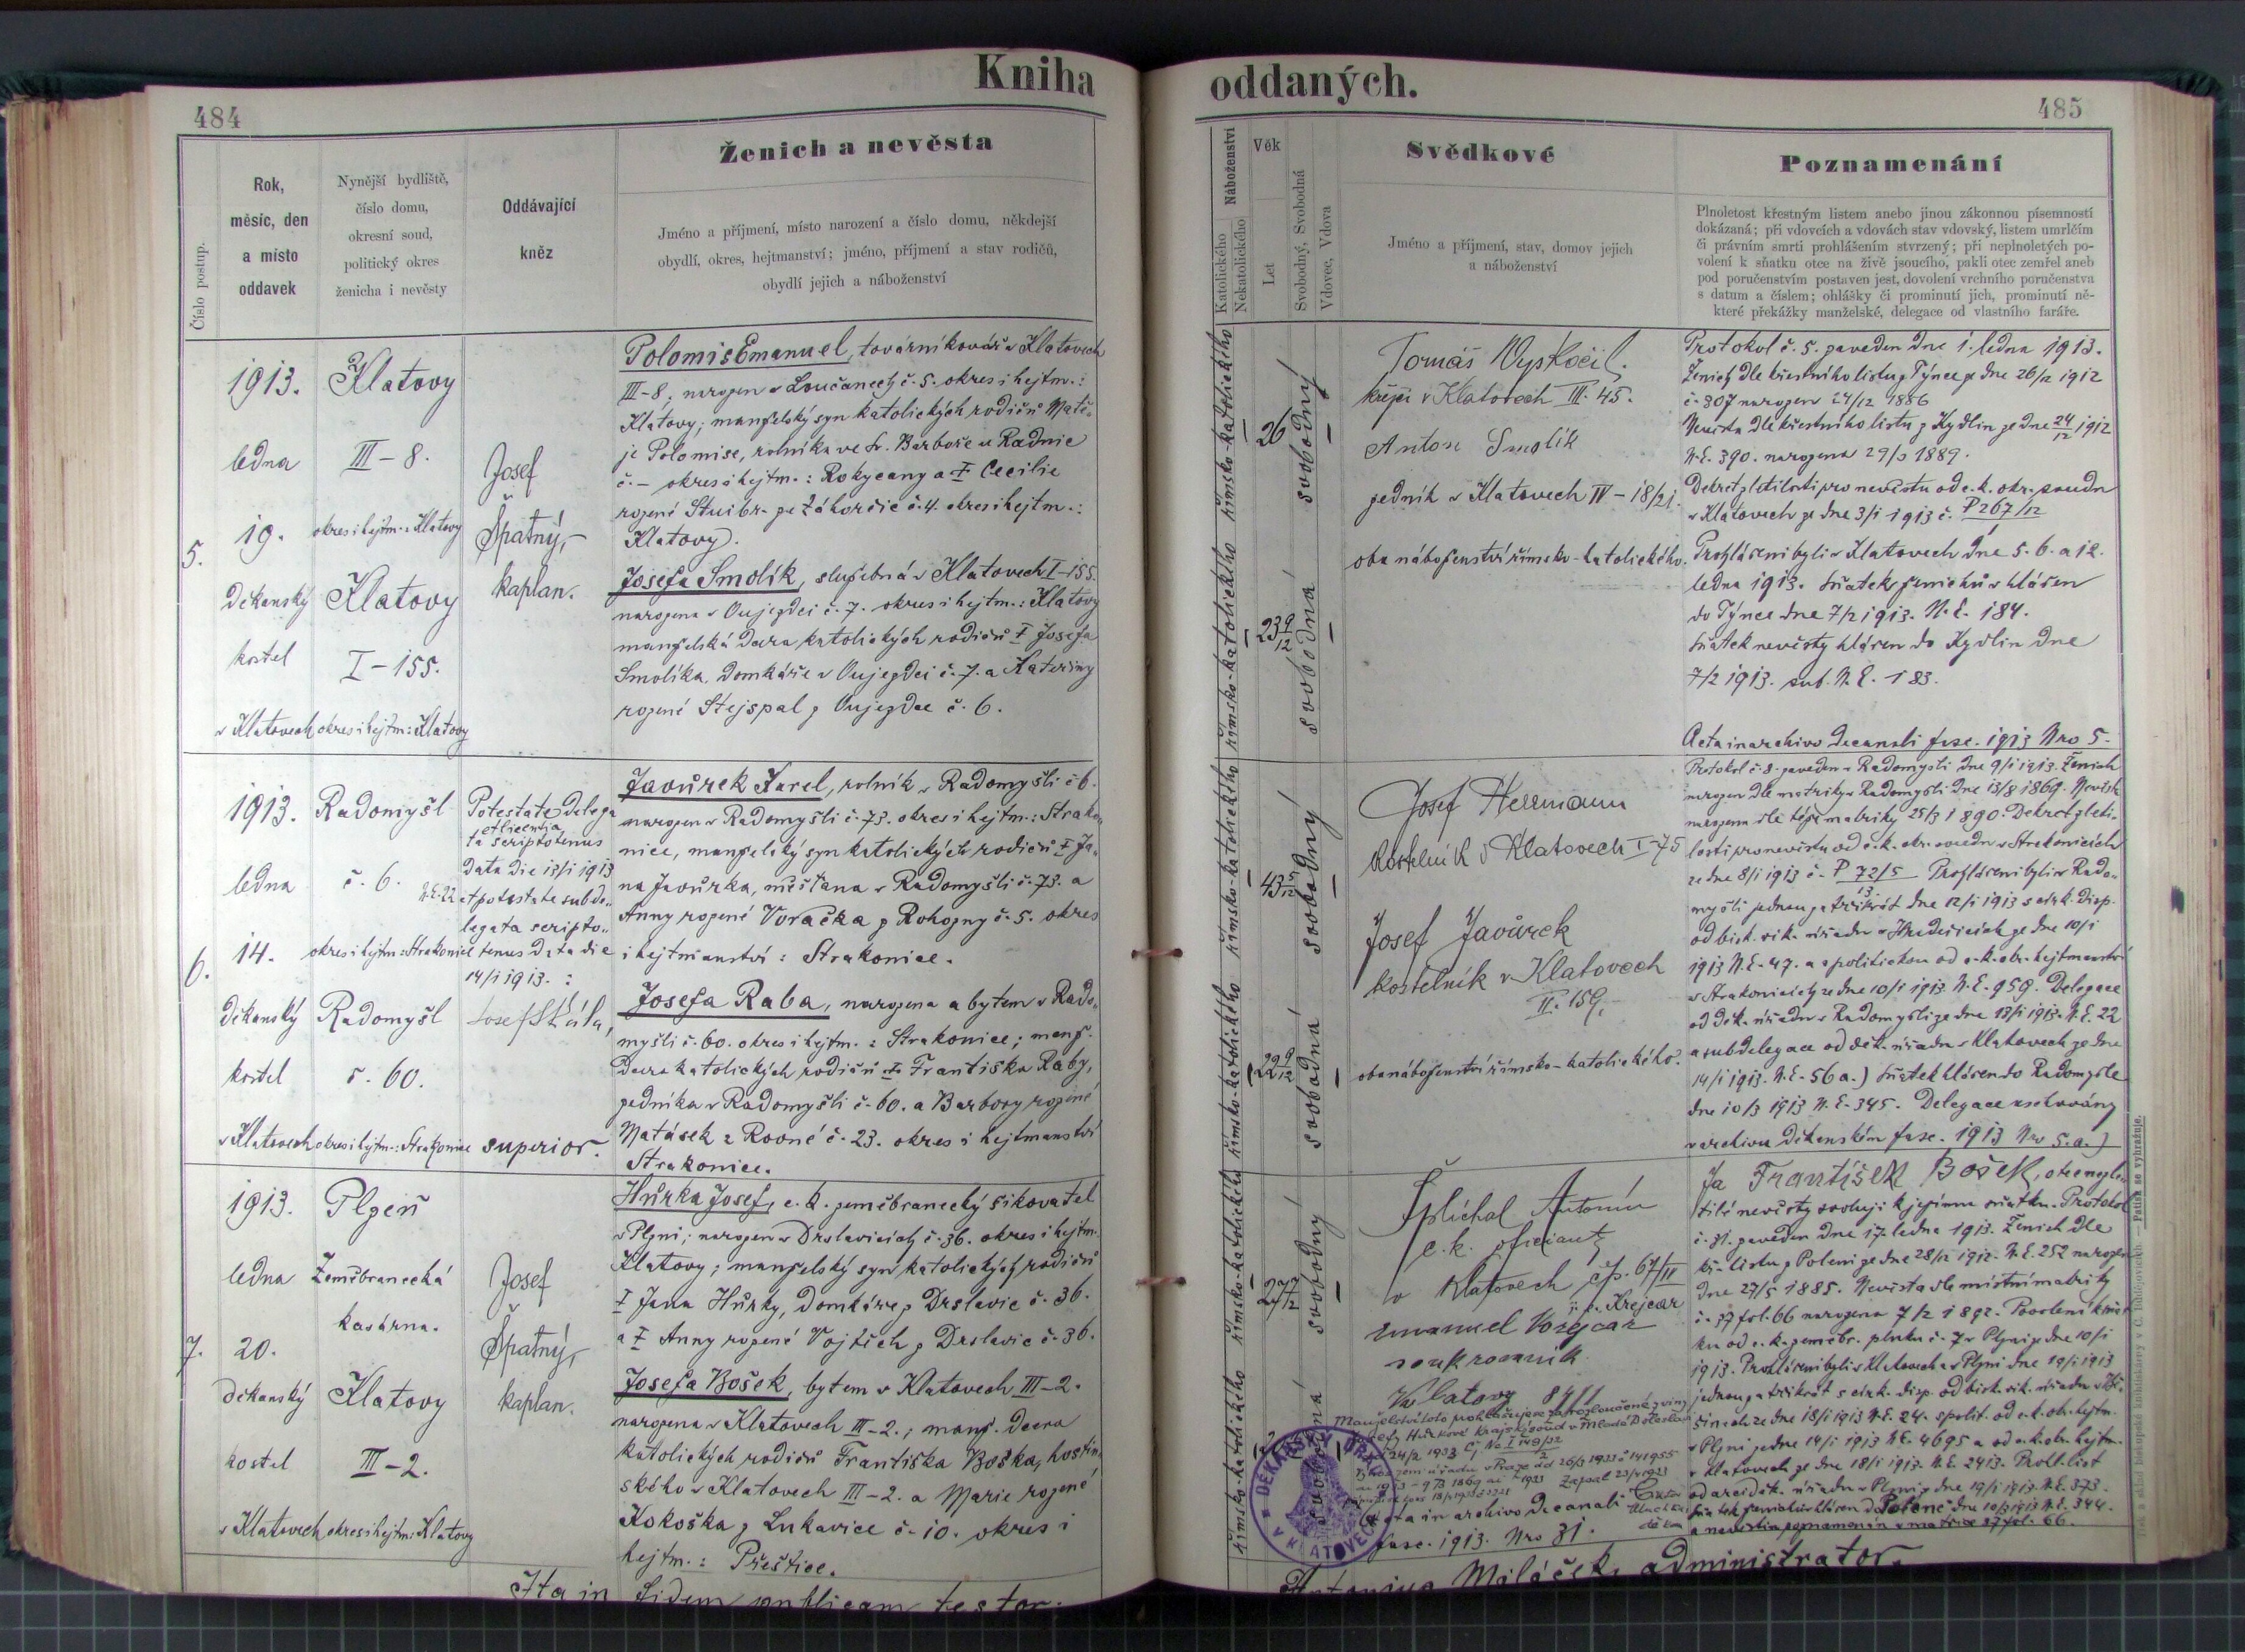 Kniha
484
Číslo postup.
Rok,
měsíc, den
a místo
oddavek
Nynější bydliště,
číslo domu,
okresní soud,
politický okres
ženicha i nevěsty
Oddávající
kněz
Ženich a nevěsta
Jméno a příjmení, místo narození a číslo domu, někdejší
obydlí, okres, hejtmanství; jméno, příjmení a stav rodičů,
obydlí jejich a náboženství
5.
1913.
ledna
19.
děkanský
kostel
v Klatovech
Klatovy
III-8.
okres i hejtm.: Klatovy
Klatovy
I-155.
okres i hejtm.: Klatovy
Josef
Špatný,
kaplan.
Polomis Emanuel, továrník v Klatovech
III-8; narozen v Loučanech č. 5. okres i hejtm.:
Klatovy; manželský syn katolických rodičů Matě-
je Polomise, rolníka ve Sv. Barboře u Radnic
č. – okres i hejtm.: Rokycany a † Cecilie
rozené ze Záhorčic č. 4. okres i hejtm.:
Klatovy.
Josefa Smolík, služebná v Klatovech I-155.
narozena v Oujezdci č. 7. okres i hejtm.: Klatovy
manželská dcera katolických rodičů † Josefa
Smolíka, domkáře v Oujezdci č. 7. a Kateřiny
rozené Stejspal z Oujezdce č. 6.
6.
1913.
ledna
14.
děkanský
kostel
v Klatovech
Radomyšl
č. 6.
okres i hejtm.: Strakonice
Radomyšl
č. 60.
okres i hejtm.: Strakonice
Potestate delega
et licentia
ta scriptotenus
data die 13/i 1913
N.E. 22 et potestate subde-
legata scripto-
tenus data die
14/i 1913.:
Josef Skála,
superior.
Javůrek Karel, rolník v Radomyšli č. 6.
narozen v Radomyšli č. 73. okres i hejtm.: Strako
nice, manželský syn katolických rodičů † Ja-
na Javůrka, měšťana v Radomyšli č. 73. a
Anny rozené Voračka z Rohozny č. 5. okres
i hejtmanství: Strakonice.
Josefa Raba, narozena a bytem v Rado-
myšli č. 60. okres i hejtm.: Strakonice; manž.
dcera katolických rodičů † Františka Raby,
zedníka v Radomyšli č. 60. a Barbory rozené
Matásek z Rovné č. 23. okres i hejtmanství
Strakonice.
7.
1913.
ledna
20.
děkanský
kostel
v Klatovech
Plzeň
Zeměbranecká
kasárna.
Klatovy
III-2.
okres i hejtm.: Klatovy
Josef
Špatný,
kaplan.
Hůrka Josef, c. k. zeměbranecký šikovatel
v Plzni; narozen v Drslavicích č. 36. okres i hejtm.
Klatovy; manželský syn katolických rodičů
† Jana Hůrky, domkáře z Drslavic č. 36.
a † Anny rozené Vojtěch z Drslavic č. 36.
Josefa Bošek, bytem v Klatovech III-2.
narozena v Klatovech III-2.; manž. dcera
katolických rodičů Františka Boška, hostin
ského v Klatovech III-2. a Marie rozené
Kokoška z Lukavice č. 10. okres i
hejtm.: Přeštice.
Ita in fidem publicam testor:
oddaných.
485
Náboženství
Katolického
Nekatolického
Věk
Let
Svobodný, Svobodná
Vdovec, Vdova
Svědkové
Jméno a příjmení, stav, domov jejich
a náboženství
Poznamenání
Plnoletost křestným listem anebo jinou zákonnou písemností
dokázaná; při vdovcích a vdovách stav vdovský, listem umrlčím
či právním smrti prohlášením stvrzený; při neplnoletých po-
volení k sňatku otce na živě jsoucího, pakli otec zemřel aneb
pod poručenstvím postaven jest, dovolení vrchního poručenstva
s datum a číslem; ohlášky či prominutí jich, prominutí ně-
které překážky manželské, delegace od vlastního faráře.
římsko-katolického
26
svobodný
římsko-katolického
23 9/12
svobodná
Tomáš Vyskočil.
krejčí v Klatovech III. 45.
Anton Smolík
zedník v Klatovech IV-18/21.
oba náboženství římsko-katolického.
Protokol č. 5. zaveden dne 1. ledna 1913.
Ženich dle křestního listu z Týnce ze dne 26/12 1912
č. 307 narozen 24/12 1886
Nevěsta dle křestního listu z Kydlin ze dne 24/12 1912
N.E. 390. narozena 29/3 1889.
Dekret zletilosti pro nevěstu od c. k. okr. soudu
v Klatovech ze dne 3/i 1913 č. P 267/12
Prohlášeni byli v Klatovech dne 5. 6. a 12.
ledna 1913. Sňatek ženichův hlášen
do Týnce dne 7/2 1913. N.E. 184.
Sňatek nevěsty hlášen do Kydlin dne
7/2 1913. sub. N.E. 183.
Acta in archivo decanali fasc. 1913 Nro 5.
římsko-katolického
43 5/12
svobodný
římsko-katolického
22 9/12
svobodná
Josef Herrmann
kostelník v Klatovech I-75
Josef Javůrek
kostelník v Klatovech
II. 159.
oba náboženství římsko-katolického.
Protokol č. 8. zaveden v Radomyšli dne 9/i 1913. Ženich
narozen dle matriky v Radomyšli dne 13/8 1869. Nevěsta
narozena dle téže matriky 25/3 1890. Dekret zleti-
losti pro nevěstu od c. k. okr. soudu v Strakonicích
ze dne 8/i 1913 č. P 72/5 Prohlášeni byli v Rado-
myšli jednou za třikrát dne 12/i 1913 s círk. disp.
od bisk. vik. úřadu v ze dne 10/i
1913 N.E. 47. a s politickou od c. k. okr. hejtmanství
v Strakonicích ze dne 10/i 1913 N.E. 959. Delegace
od děk. úřadu v Radomyšli ze dne 13/i 1913. N.E. 22
a subdelegace od děk. úřadu v Klatovech ze dne
14/i 1913. N.E. 56 a.) Sňatek hlášen do Radomyšle
dne 10/3 1913 N.E. 345. Delegace uschovány
v archivu děkanském fasc. 1913 Nro 5.a.)
římsko-katolického
27 7/12
svobodný
římsko-katolického
svobodná
Šplíchal Antonín
c. k. oficiant
v Klatovech čp. 67/IV
Krejcar
Emanuel
soukromník
Klatovy 84/I
Manželství toto prohlašuje se za rozloučené z viny
Josefy Hůrkové Krajský soud v Mladé Boleslavi
24/2 1933
Acta in archivo Decanali
fasc. 1913. Nro 31.
DĚKANSKÝ ÚŘAD
V KLATOVECH
Já František Bošek, otec nezle-
tilé nevěsty svoluji k jejímu sňatku. Protokol
č. 31. zaveden dne 17. ledna 1913. Ženich dle
kř. listu z Poleni ze dne 28/12 1912. N.E. 252 narozen
dne 27/5 1885. Nevěsta dle místní matriky
č. 37 fol. 66 narozena 7/2 1892. Povolení k sňat
ku od c. k. zeměbr. pluku č. 7 v Plzni ze dne 10/i
1913. Prohlášeni byli v Klatovech a v Plzni dne 19/i 1913
jednou za třikrát s círk. disp. od bisk. vik. úřadu
ze dne 18/i 1913 N.E. 24. s polit. od c. k. okr. hejtm.
v Plzni ze dne 14/i 1913 N.E. 4695 a od c. k. okr. hejtm.
v Klatovech ze dne 18/i 1913. N.E. 2413. Prohl. list
od arciděk. úřadu v Plzni ze dne 19/i 1913. N.E. 373.
Sňatek ženichův hlášen do Poleně dne 10/3 1913 N.E. 344.
a nevěstin poznamenán v matrice 37 fol. 66.
Antonius Miláček, administrator.